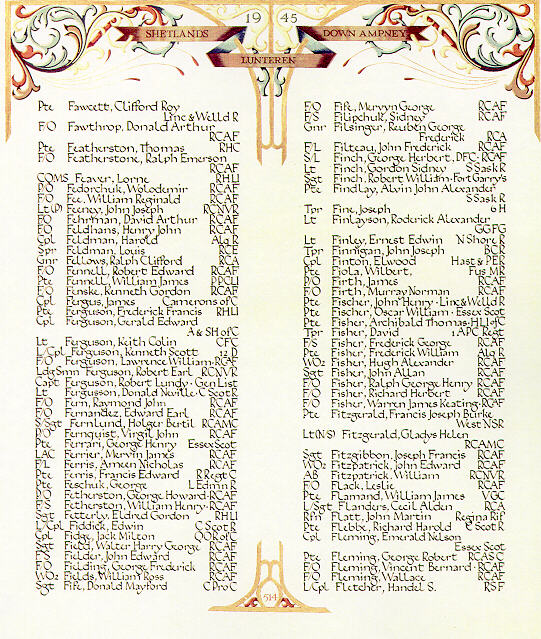 19 45
SHETLANDS DOWN AMPNEY
LUNTEREN
Pte Fawcett, Clifford Roy
Linc & Welld R
F/O Fawthrop, Donald Arthur
RCAF
Pte Featherston, Thomas RHC
F/O Featherstone, Ralph Emerson
RCAF
COMS Feaver, Lorne RHLI
P/O Fedorchuk, Wolodemir RCAF
F/O Fee, William Reginald RCAF
Lt(P) Feeney, John Joseph RCNVR
F/O Fehrman, David Arthur RCAF
F/O Feldhans, Henry John RCAF
Cpl Feldman, Harold Alq R
Spr Feldman, Louis RCE
Gnr Fellows, Ralph Clifford RCA
F/O Fennell, Robert Edward RCAF
Pte Fennell, William James PPCLI
F/O Fenske, Kenneth Gordon RCAF
Cpl Fergus, James Camerons of C
Pte Ferguson, Frederick Francis RHLI
Cpl Ferguson, Gerald Edward
A & SH of C
Lt Ferguson, Keith Colin CFC
L/Cpl Ferguson, Kenneth Scott 12 D
F/O Ferguson, Lawrence William·RCAF
Ldg Smn Ferguson, Robert Earl RCNVR
Capt Ferguson, Robert Lundy · Gen List
Lt Fergusson, Donald Neville·C Scot R
F/O Fern, Raymond John RCAF
F/O Fernandez, Edward Earl RCAF
S/Sgt Fernlund, Holger Bertil RCAMC
P/O Fernquist, Virgil John RCAF
Pte Ferrari, George Henry Essex Scot
LAC Ferrier, Mervin James RCAF
F/L Ferris, Armen Nicholas RCAF
Pte Ferris, Francis Edward R Regt C
Pte Feschuk, George L Edmn R
P/O Fetherston, George Howard·RCAF
F/S Fetherston, William Henry·RCAF
Sgt Fetterly, Eldred Gordon RHLI
L/Cpl Fiddick, Edwin C Scot R
Cpl Fidge, Jack Milton Q O R of C
Sgt Field, Walter Harry George RCAF
F/S Fielder, John Edward RCAF
F/O Fielding, George Frederick RCAF
WO2 Fields, William Ross RCAF
Sgt Fife, Donald Mayford C Pro C
F/O Fife, Mervyn George RCAF
F/S Filipchuk, Sidney RCAF
Gnr Filsinger, Reuben George
Frederick RCA
F/L Filteau, John Frederick RCAF
S/L Finch, George Herbert, DFC·RCAF
Lt Finch, Gordon Sidney S Sask R
Sgt Finch, Robert William·Fort Garrys
Pte Findlay, Alvin John Alexander
S Sask R
Tpr Fine, Joseph 6 H
Lt Finlayson, Roderick Alexander
GGFG
Lt Finley, Ernest Edwin N Shore R
Tpr Finnigan, John Joseph BCR
Cpl Finton, Elwood Hast & PER
Pte Fiola, Wilbert, Fus MR
P/O Firth, James RCAF
F/O Firth, Murray Norman RCAF
Pte Fischer, John Henry · Linc & Welld R
Pte Fischer, Oscar William · Essex Scot
Pte Fisher, Archibald Thomas·HLI of C
Tpr Fisher, David 1 APC Regt
F/S Fisher, Frederick George RCAF
Pte Fisher, Frederick William Alq R
WO2 Fisher, Hugh Alexander RCAF
Sgt Fisher, John Allan RCAF
F/O Fisher, Ralph George Henry RCAF
F/O Fisher, Richard Herbert RCAF
F/O Fisher, Warren James Keating·RCAF
Pte Fitzgerald, Francis Joseph Burke
West NSR
Lt(NS) Fitzgerald, Gladys Helen
RCAMC
Sgt Fitzgibbon, Joseph Francis RCAF
WO2 Fitzpatrick, John Edward RCAF
AB Fitzpatrick, William RCNVR
F/O Flack, Leslie RCAF
Pte Flamand, William James VGC
L/Sgt Flanders, Cecil Alden RCA
Rfn Flatt, John Martin Regina Rif
Pte Flebbe, Richard Harold C Scot R
Cpl Fleming, Emerald Nelson
Essex Scot
Pte Fleming, George Robert RCASC
F/O Fleming, Vincent Bernard · RCAF
F/O Fleming, Wallace RCAF
L/Cpl Fletcher, Handel S. RSF
514